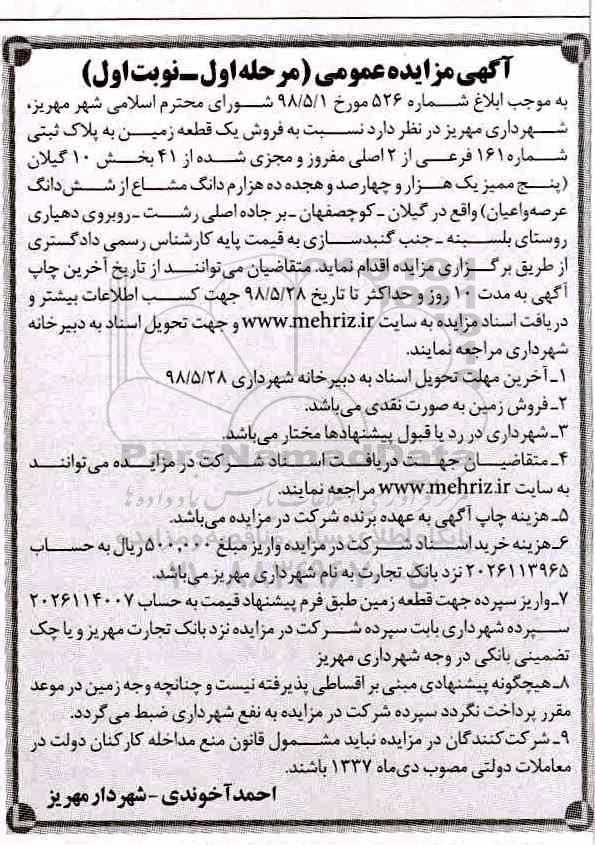 آگهی مزایده عمومی (مرحله اول ـ نوبت اول)
به موجب ابلاغ شماره ۵۲۶ مورخ ۹۸/۵/۱ شورای محترم اسلامی شهر مهریز،
شهرداری مهریز در نظر دارد نسبت به فروش یک قطعه زمین به پلاک ثبتی
شماره ۱۶۱ فرعی از ۲ اصلی مفروز و مجزی شده از ۴۱ بخش ۱۰ گیلان
(پنج ممیز یک هزار و چهارصد و هجده ده هزارم دانگ مشاع از شش‌دانگ
عرصه واعیان) واقع در گیلان ـ کوچصفهان ـ بر جاده اصلی رشت ـ روبروی دهیاری
روستای بلسبنه ـ جنب گنبدسازی به قیمت پایه کارشناس رسمی دادگستری
از طریق برگزاری مزایده اقدام نماید. متقاضیان می‌توانند از تاریخ آخرین چاپ
آگهی به مدت ۱۰ روز و حداکثر تا تاریخ ۹۸/۵/۲۸ جهت کسب اطلاعات بیشتر و
دریافت اسناد مزایده به سایت www.mehriz.ir و جهت تحویل اسناد به دبیرخانه
شهرداری مراجعه نمایند.
۱ـ آخرین مهلت تحویل اسناد به دبیرخانه شهرداری ۹۸/۵/۲۸
۲ـ فروش زمین به صورت نقدی می‌باشد.
۳ـ شهرداری در رد یا قبول پیشنهادها مختار می‌باشد.
۴ـ متقاضیان جهت دریافت اسناد شرکت در مزایده می‌توانند
به سایت www.mehriz.ir مراجعه نمایند.
۵ـ هزینه چاپ آگهی به عهده برنده شرکت در مزایده می‌باشد.
۶ـ هزینه خرید اسناد شرکت در مزایده واریز مبلغ ۵۰۰,۰۰۰ ریال به حساب
۲۰۲۶۱۱۳۹۶۵ نزد بانک تجارت به نام شهرداری مهریز می‌باشد.
۷ـ واریز سپرده جهت قطعه زمین طبق فرم پیشنهاد قیمت به حساب ۲۰۲۶۱۱۴۰۰۷
سپرده شهرداری بابت سپرده شرکت در مزایده نزد بانک تجارت مهریز و یا چک
تضمینی بانکی در وجه شهرداری مهریز
۸ـ هیچگونه پیشنهادی مبنی بر اقساطی پذیرفته نیست و چنانچه وجه زمین در موعد
مقرر پرداخت نگردد سپرده شرکت در مزایده به نفع شهرداری ضبط می‌گردد.
۹ـ شرکت‌کنندگان در مزایده نباید مشمول قانون منع مداخله کارکنان دولت در
معاملات دولتی مصوب دی‌ماه ۱۳۳۷ باشند.
احمد آخوندی - شهردار مهریز
ParsNamadData